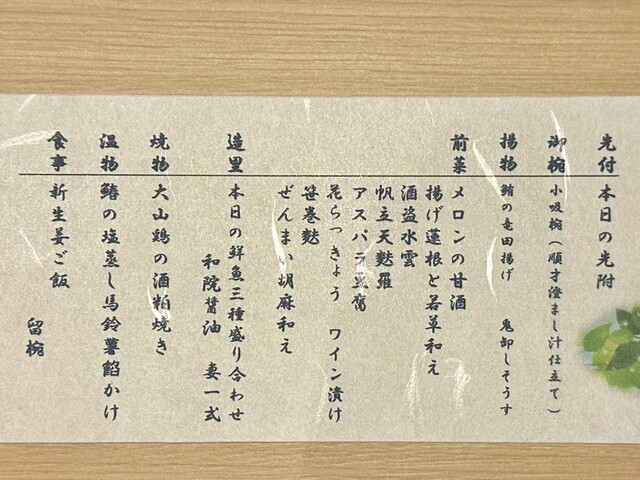 先付 本日の先附
御椀 小吸椀(順才澄まし汁仕立て)
揚物 鮪の竜田揚げ 鬼卸しそうす
前菜 メロンの甘酒
揚げ蓮根と若草和え
酒盗水雲
帆立天麩羅
アスパラ豆腐
花らっきょう ワイン漬け
笹巻麩
ぜんまい胡麻和え
造里 本日の鮮魚三種盛り合わせ
和院醤油 妻一式
焼物 大山鶏の酒粕焼き
温物 鰆の塩蒸し馬鈴薯餡かけ
食事 新生姜ご飯
留椀